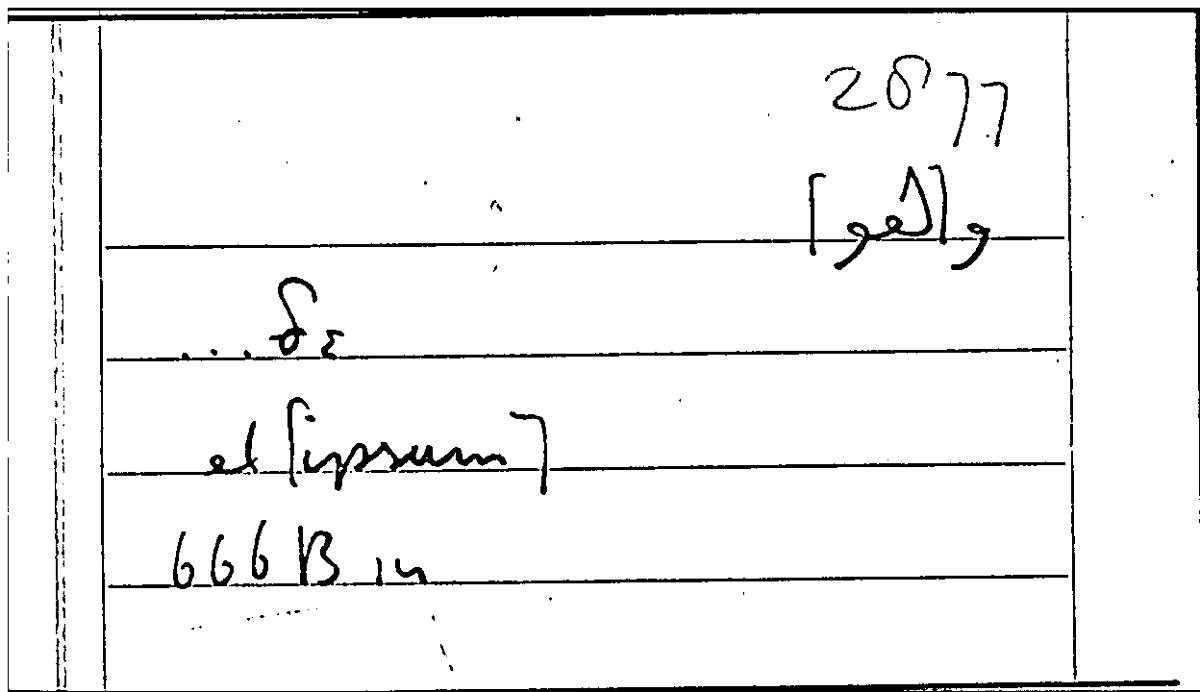 2877
و[هو]
... δε
et [ipsum]
666 B 14